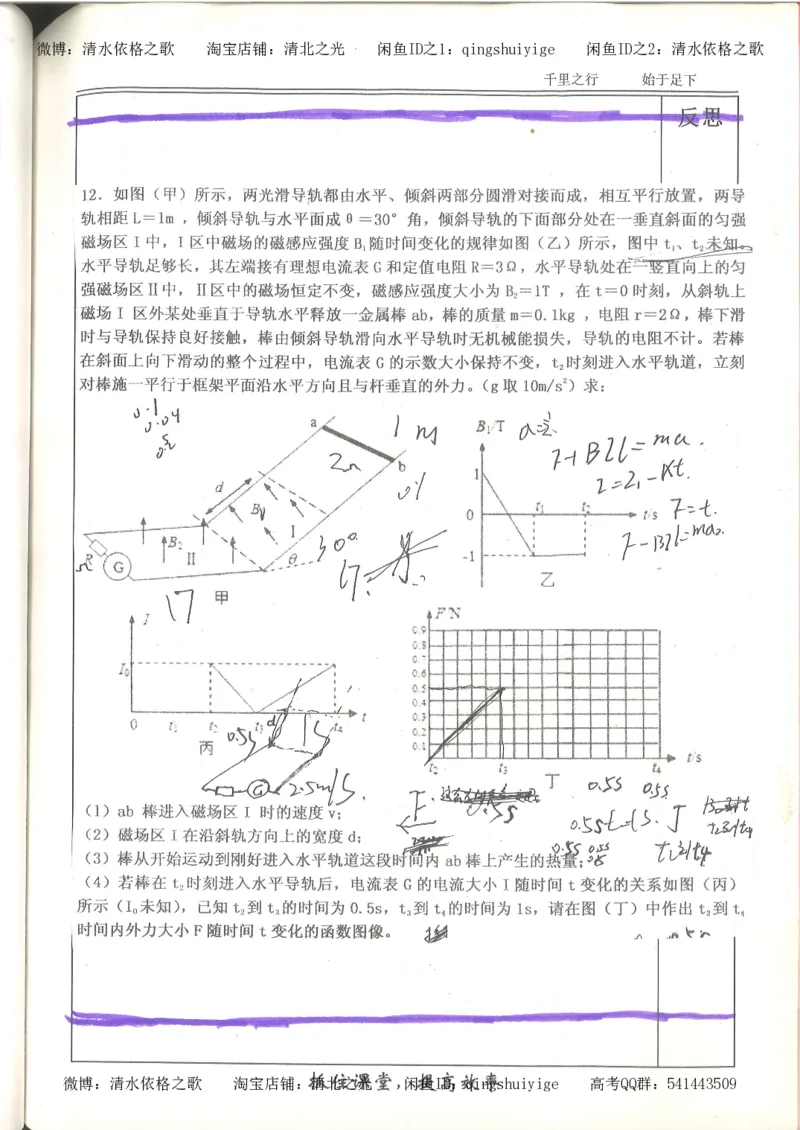 微博：清水依格之歌 淘宝店铺：清北之光 闲鱼ID之1：qingshuiyige 闲鱼ID之2：清水依格之歌
千里之行 始于足下
反思
12．如图（甲）所示，两光滑导轨都由水平、倾斜两部分圆滑对接而成，相互平行放置，两导
轨相距L＝1m ，倾斜导轨与水平面成θ＝30° 角，倾斜导轨的下面部分处在一垂直斜面的匀强
磁场区Ⅰ中，Ⅰ区中磁场的磁感应强度B₁随时间变化的规律如图（乙）所示，图中t₁、t₂未知。
水平导轨足够长，其左端接有理想电流表 G 和定值电阻 R＝3Ω，水平导轨处在一竖直向上的匀
强磁场区Ⅱ中，Ⅱ区中的磁场恒定不变，磁感应强度大小为 B₂＝1T ，在 t＝0 时刻，从斜轨上
磁场Ⅰ区外某处垂直于导轨水平释放一金属棒 ab，棒的质量 m＝0.1kg ，电阻 r＝2Ω，棒下滑
时与导轨保持良好接触，棒由倾斜导轨滑向水平导轨时无机械能损失，导轨的电阻不计。若棒
在斜面上向下滑动的整个过程中，电流表 G 的示数大小保持不变，t₂时刻进入水平轨道，立刻
对棒施一平行于框架平面沿水平方向且与杆垂直的外力。（g 取 10m/s²）求：
0.1
0.04
a
b
1m
2Ω
d
B₁
Ⅰ
B₂
Ⅱ
R
G
θ
30°
甲
B₁/T
1
0
-1
t₁ t₂ t/s
乙
F+BIL=ma.
I=I₁-kt.
F=t.
F-BIL=ma.
I
I₀
0 t₁ t₂ t₃ t₄ t
丙
0.5s
1s
G
2.5m/s.
F/N
0.9
0.8
0.7
0.6
0.5
0.4
0.3
0.2
0.1
t₂ t₃ t₄ t/s
丁
0.5s 0.5s
F
0.5s
（1）ab 棒进入磁场区Ⅰ 时的速度 v；
（2）磁场区Ⅰ在沿斜轨方向上的宽度 d；
（3）棒从开始运动到刚好进入水平轨道这段时间内 ab 棒上产生的热量；
（4）若棒在 t₂时刻进入水平导轨后，电流表 G 的电流大小 I 随时间 t 变化的关系如图（丙）
所示（I₀未知），已知 t₂到 t₃的时间为 0.5s，t₃到 t₄的时间为 1s，请在图（丁）中作出 t₂到 t₄
时间内外力大小 F 随时间 t 变化的函数图像。
抓住课堂，提高效率
微博：清水依格之歌 淘宝店铺：清北之光 闲鱼ID之1：qingshuiyige 高考QQ群：541443509